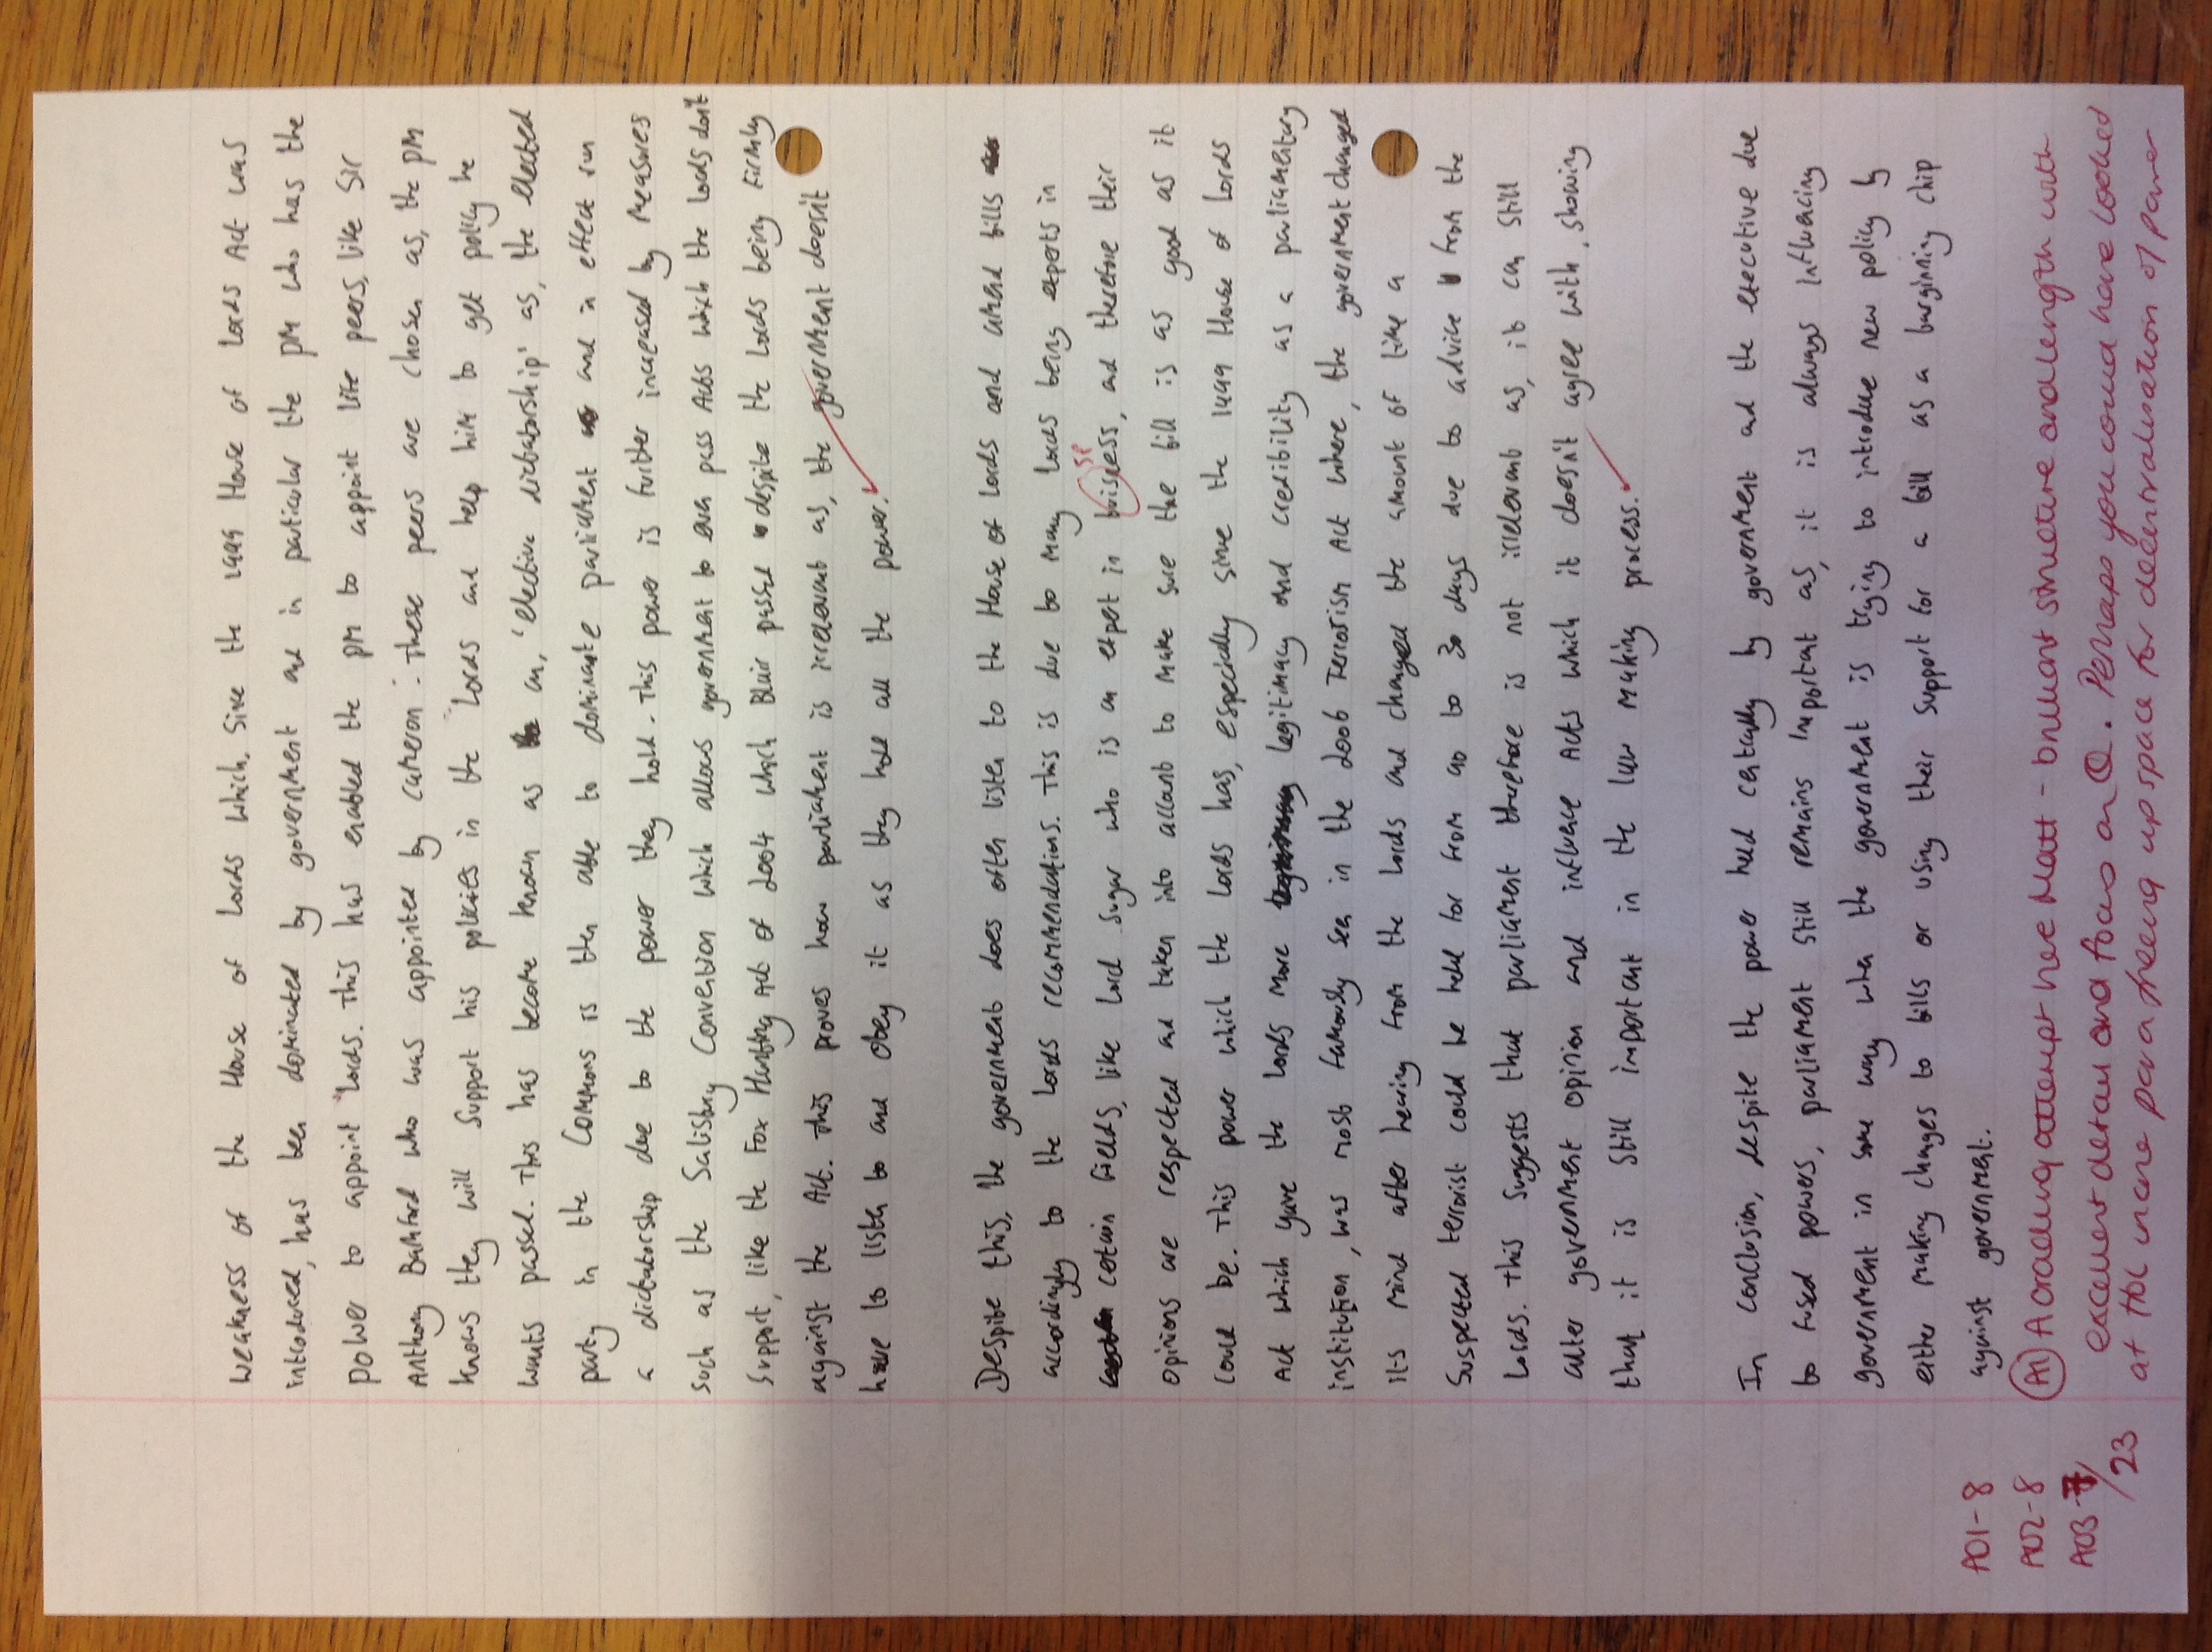 weakness of the House of Lords which, Since the 1999 House of Lords Act was
introduced, has been dominated by government and in particular the PM who has the
power to appoint Lords. This has enabled the PM to appoint life peers, like Sir
Anthony Bamford who was appointed by Cameron. These peers are chosen as, the PM
knows they will support his policies in the Lords and help him to get policy he
wants passed. This has become known as an, 'elective dictatorship' as, the elected
party in the Commons is then able to dominate parliament and in effect run
a dictatorship due to the power they hold. This power is further increased by measures
such as the Salisbury Convention which allows government to even pass Acts which the Lords don't
support, like the Fox Hunting Act of 2004 which Blair passed despite the Lords being firmly
against the Act. This proves how parliament is irrelevant as, the government doesn't
have to listen to and obey it as they hold all the power.
Despite this, the government does often listen to the House of Lords and amend bills
accordingly to the Lords recommendations. This is due to many Lords being experts in
certain fields, like Lord Sugar who is an expert in buisness, and therefore their
sp
opinions are respected and taken into account to make sure the bill is as good as it
could be. This power which the Lords has, especially since the 1999 House of Lords
Act which gave the Lords more legitimacy and credibility as a parliamentary
institution, was most famously seen in the 2006 Terrorism Act where, the government changed
its mind after hearing from the Lords and changed the amount of time a
suspected terrorist could be held for from 90 to 30 days due to advice from the
Lords. This suggests that parliament therefore is not irrelevant as, it can still
alter government opinion and influence Acts which it doesn't agree with, showing
that it is still important in the law making process.
In conclusion, despite the power held centrally by government and the executive due
to fused powers, parliament still remains important as, it is always influencing
government in some way when the government is trying to introduce new policy by
either making changes to bills or using their support for a bill as a barginning chip
against government.
AO1-8
AO2-8
AO3-7
/23
A1 A cracking attempt here Matt - brilliant structure and length with
excellent detail and focus on Q. Perhaps you could have looked
at HoL in one para freeing up space for decentralisation of power